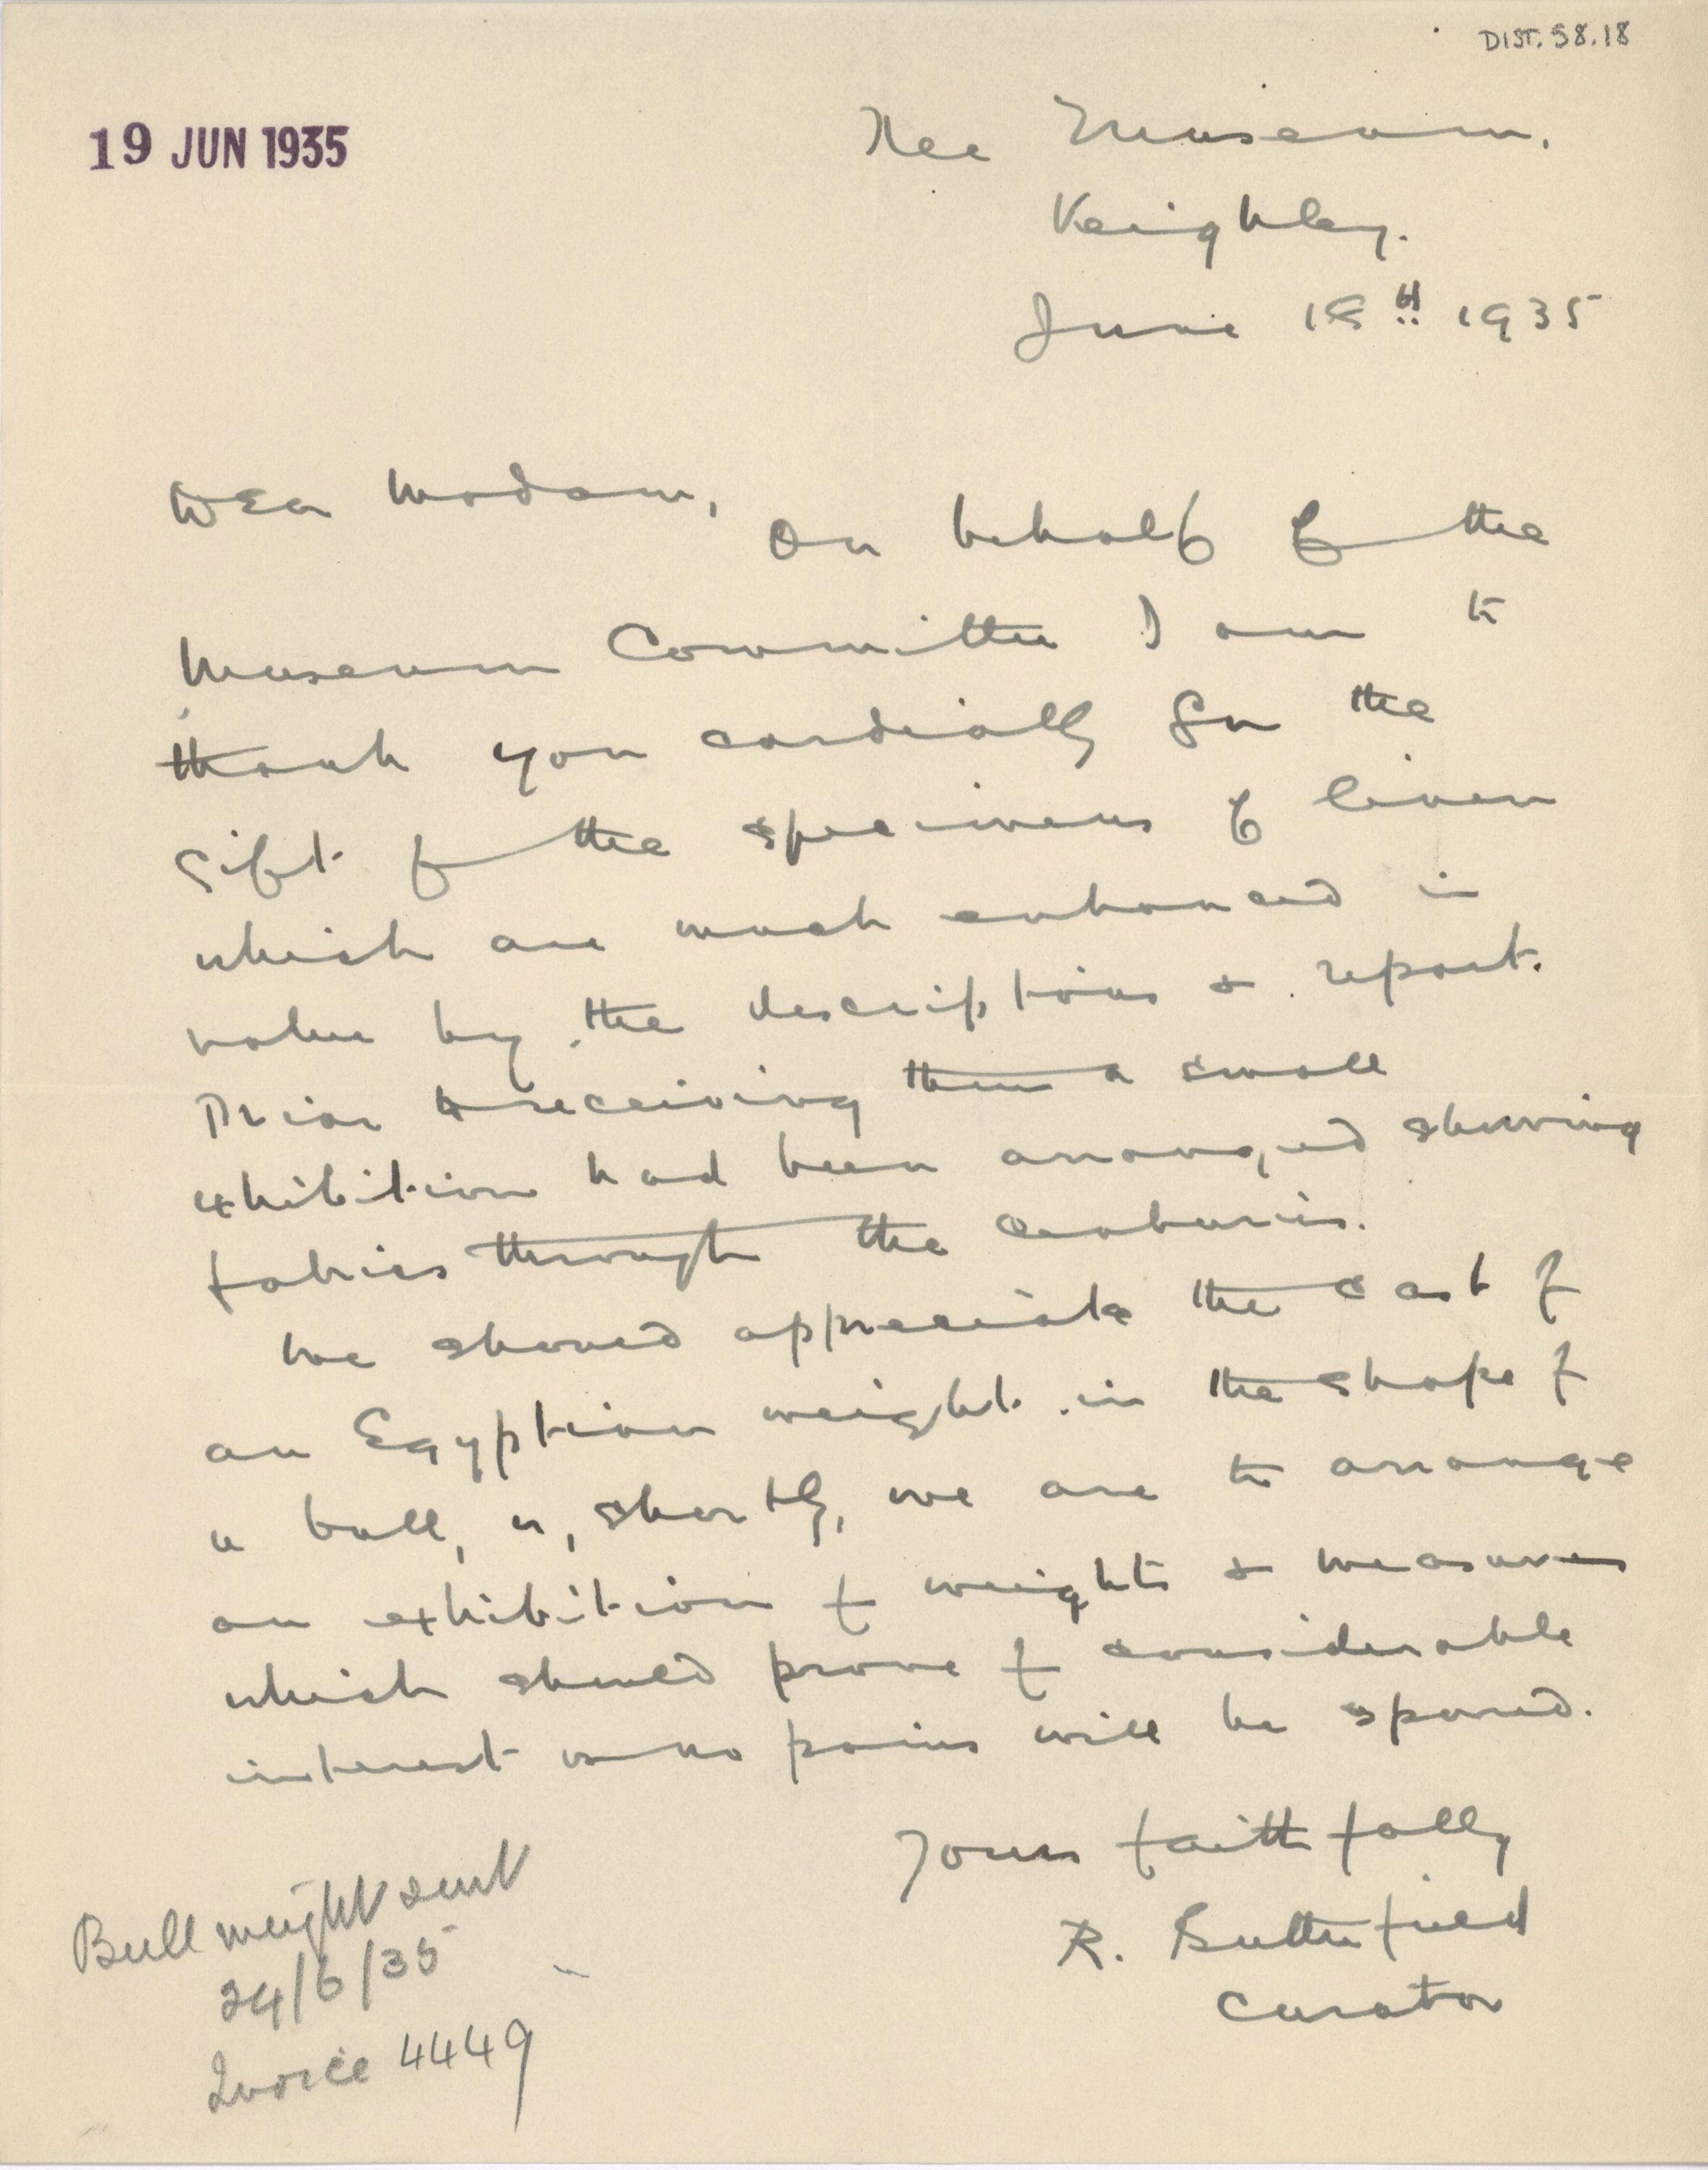 DIST. 58.18
19 JUN 1935
The Museum.
Keighley.
June 18th 1935
Dear Madam,
On behalf of the
Museum Committee I am to
thank you cordially for the
gift of the specimens of linen
which are much enhanced in
value by the descriptions & report.
Prior to receiving them a small
exhibition had been arranged shewing
fabrics through the centuries.
We should appreciate the cast of
an Egyptian weight in the shape of
a bull, as, shortly, we are to arrange
an exhibition of weights & measures
which should prove of considerable
interest as no pains will be spared.
Yours faithfully
R. Butterfield
Curator
Bull weight sent
24/6/35
Invoice 4449